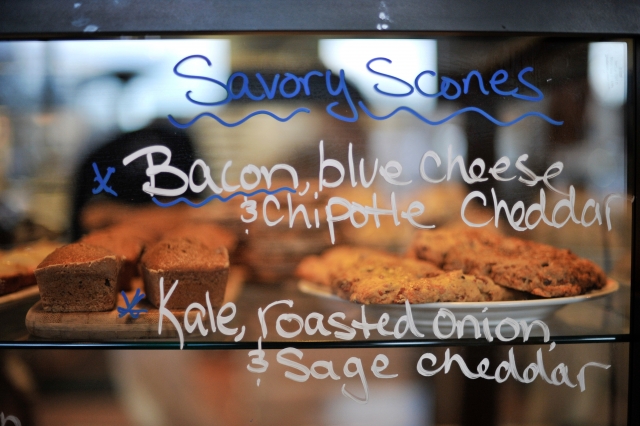 Savory Scones
* Bacon, blue cheese
& Chipotle Cheddar
* Kale, roasted onion,
& Sage cheddar